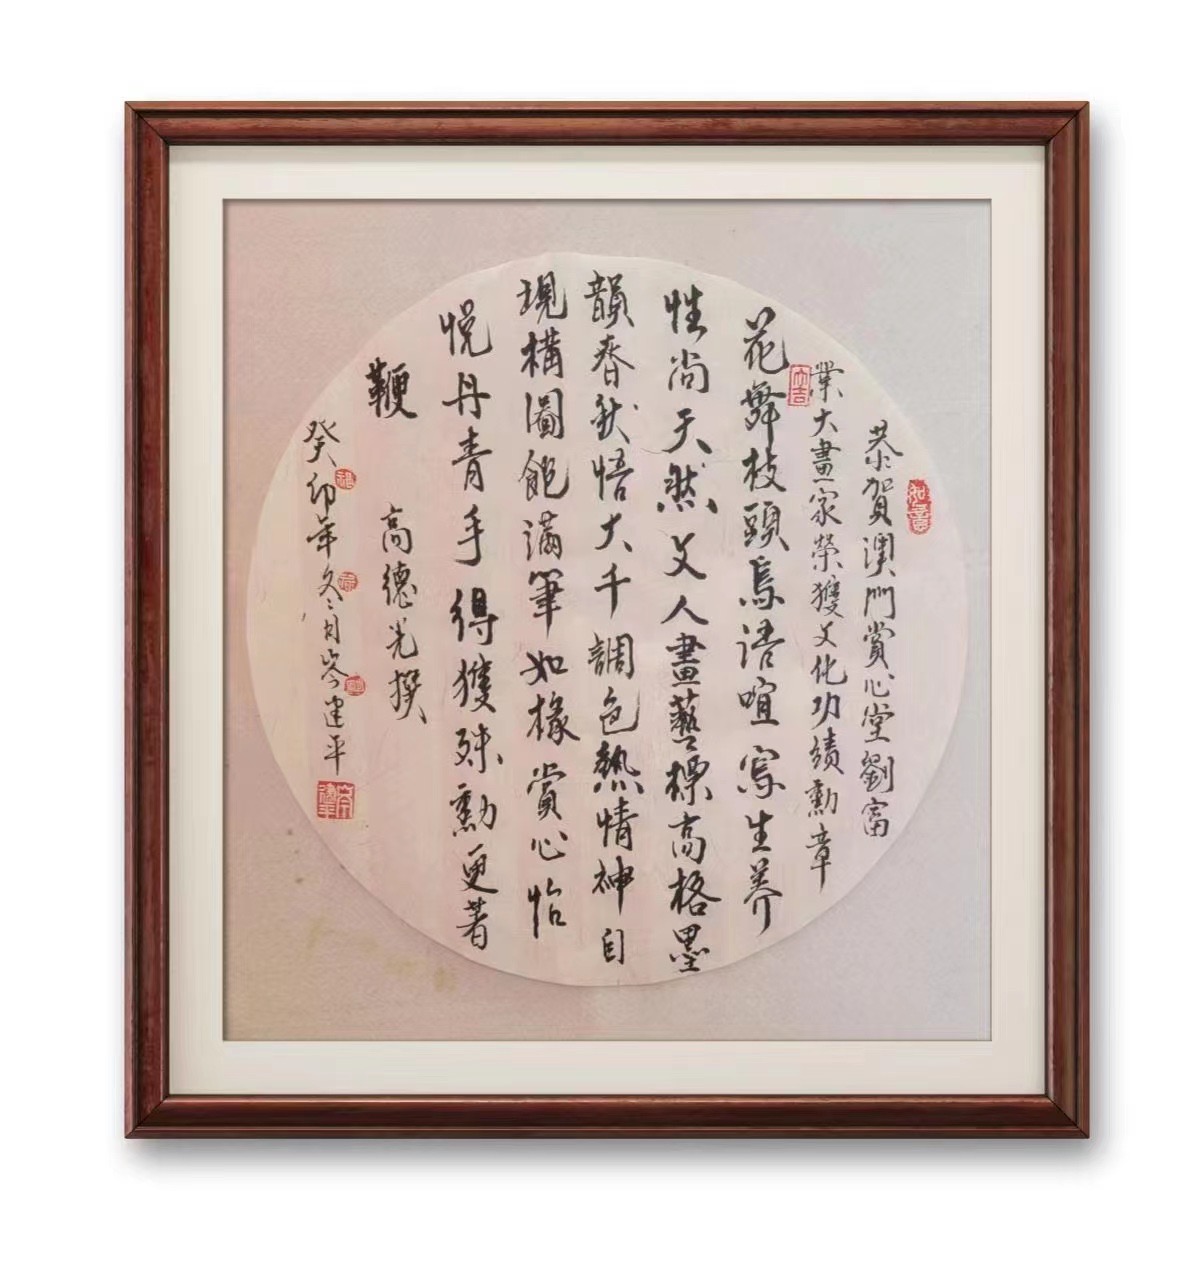 恭賀澳門賞心堂劉富
業大畫家榮獲文化功績勳章
花舞枝頭鳥語喧寫生養
性尚天然文人畫藝標高格墨
韻春秋悟大千調色熱情神自
現構圖飽滿筆如椽賞心怡
悅丹青手得獲殊勳更著
鞭
高德光撰
癸卯年冬月岑建平
如意
大吉